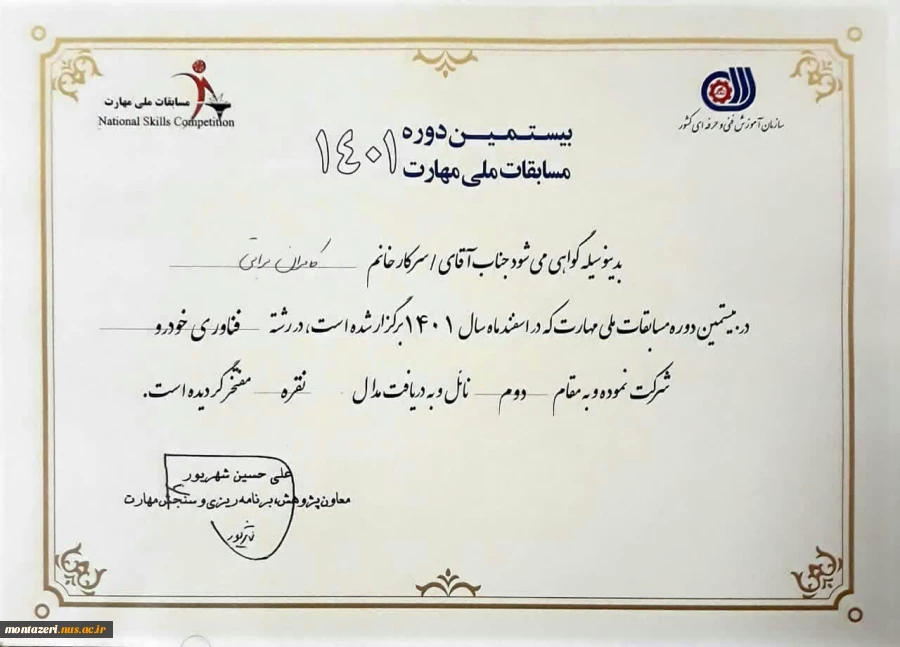 مسابقات ملی مهارت
National Skills Competition
سازمان آموزش فنی و حرفه ای کشور
بیستمین دوره
مسابقات ملی مهارت
۱۴۰۱
بدینوسیله گواهی می شود جناب آقای / سرکار خانم کامران براتی
در بیستمین دوره مسابقات ملی مهارت که در اسفند ماه سال ۱۴۰۱ برگزار شده است، در رشته فناوری خودرو
شرکت نموده و به مقام دوم نائل و به دریافت مدال نقره مفتخر گردیده است.
علی حسین شهریور
معاون پژوهش، برنامه ریزی و سنجش مهارت
montazeri.nus.ac.ir